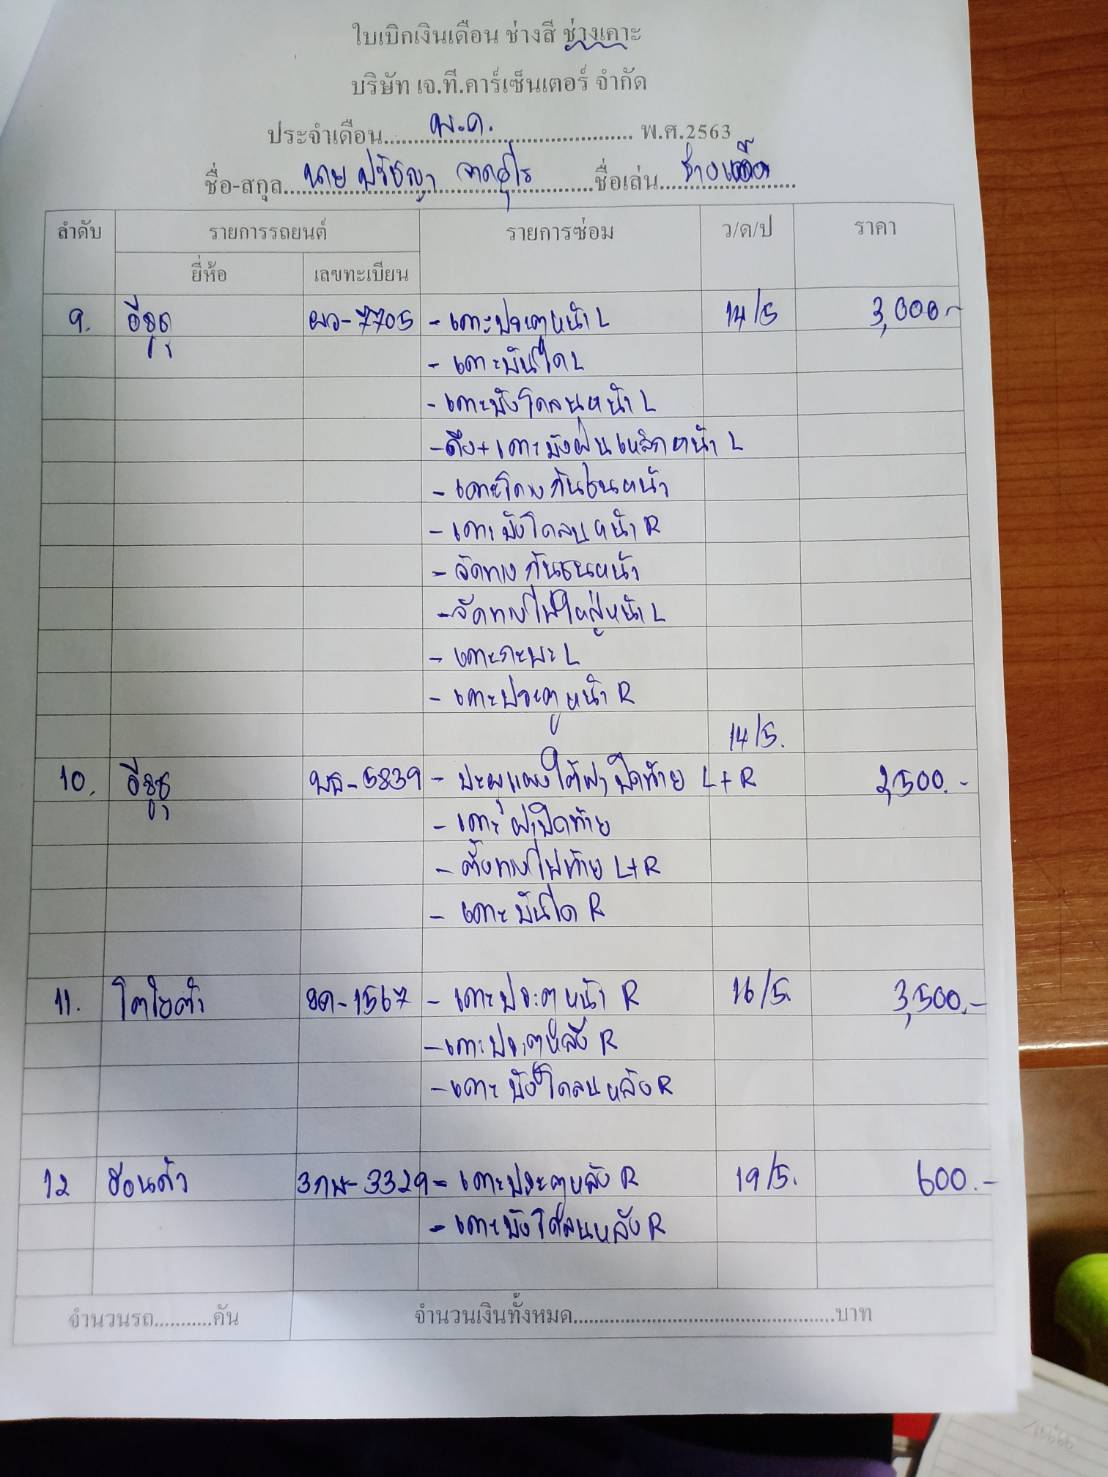 ใบเบิกเงินเดือน ช่างสี ช่างเคาะ
บริษัท เจ.ที.คาร์เซ็นเตอร์ จำกัด
ประจำเดือน.....พ.ค......พ.ศ.2563
ชื่อ-สกุล.....นาย ปรัชญา.....ชื่อเล่น.....ช่าง.....
ลำดับ รายการรถยนต์ รายการซ่อม ว/ด/ป ราคา
ยี่ห้อ เลขทะเบียน
9. อีซูซุ ผว-7705 - เคาะประตูหน้า L 14/5 3,000.-
- เคาะบันได L
- เคาะบังโคลนหน้า L
- ดึง+เคาะบังฝุ่นเหล็กหน้า L
- เคาะโครงกันชนหน้า
- เคาะบังโคลนหน้า R
- จัดทางกันชนหน้า
- จัดทางไฟใหญ่หน้า L
- เคาะกะบะ L
- เคาะประตูหน้า R
14/5.
10. อีซูซุ บธ-5839 - ปะผุแผงใต้ฝาปิดท้าย L+R 2,500.-
- เคาะฝาปิดท้าย
- ตั้งทางไฟท้าย L+R
- เคาะบันได R
11. โตโยต้า ขค-1567 - เคาะประตูหน้า R 16/5. 3,500.-
- เคาะประตูหลัง R
- เคาะบังโคลนหลัง R
12 ฮอนด้า 3กษ-3329 - เคาะประตูหลัง R 19/5. 600.-
- เคาะบังโคลนหลัง R
จำนวนรถ...........คัน จำนวนเงินทั้งหมด..............................................บาท